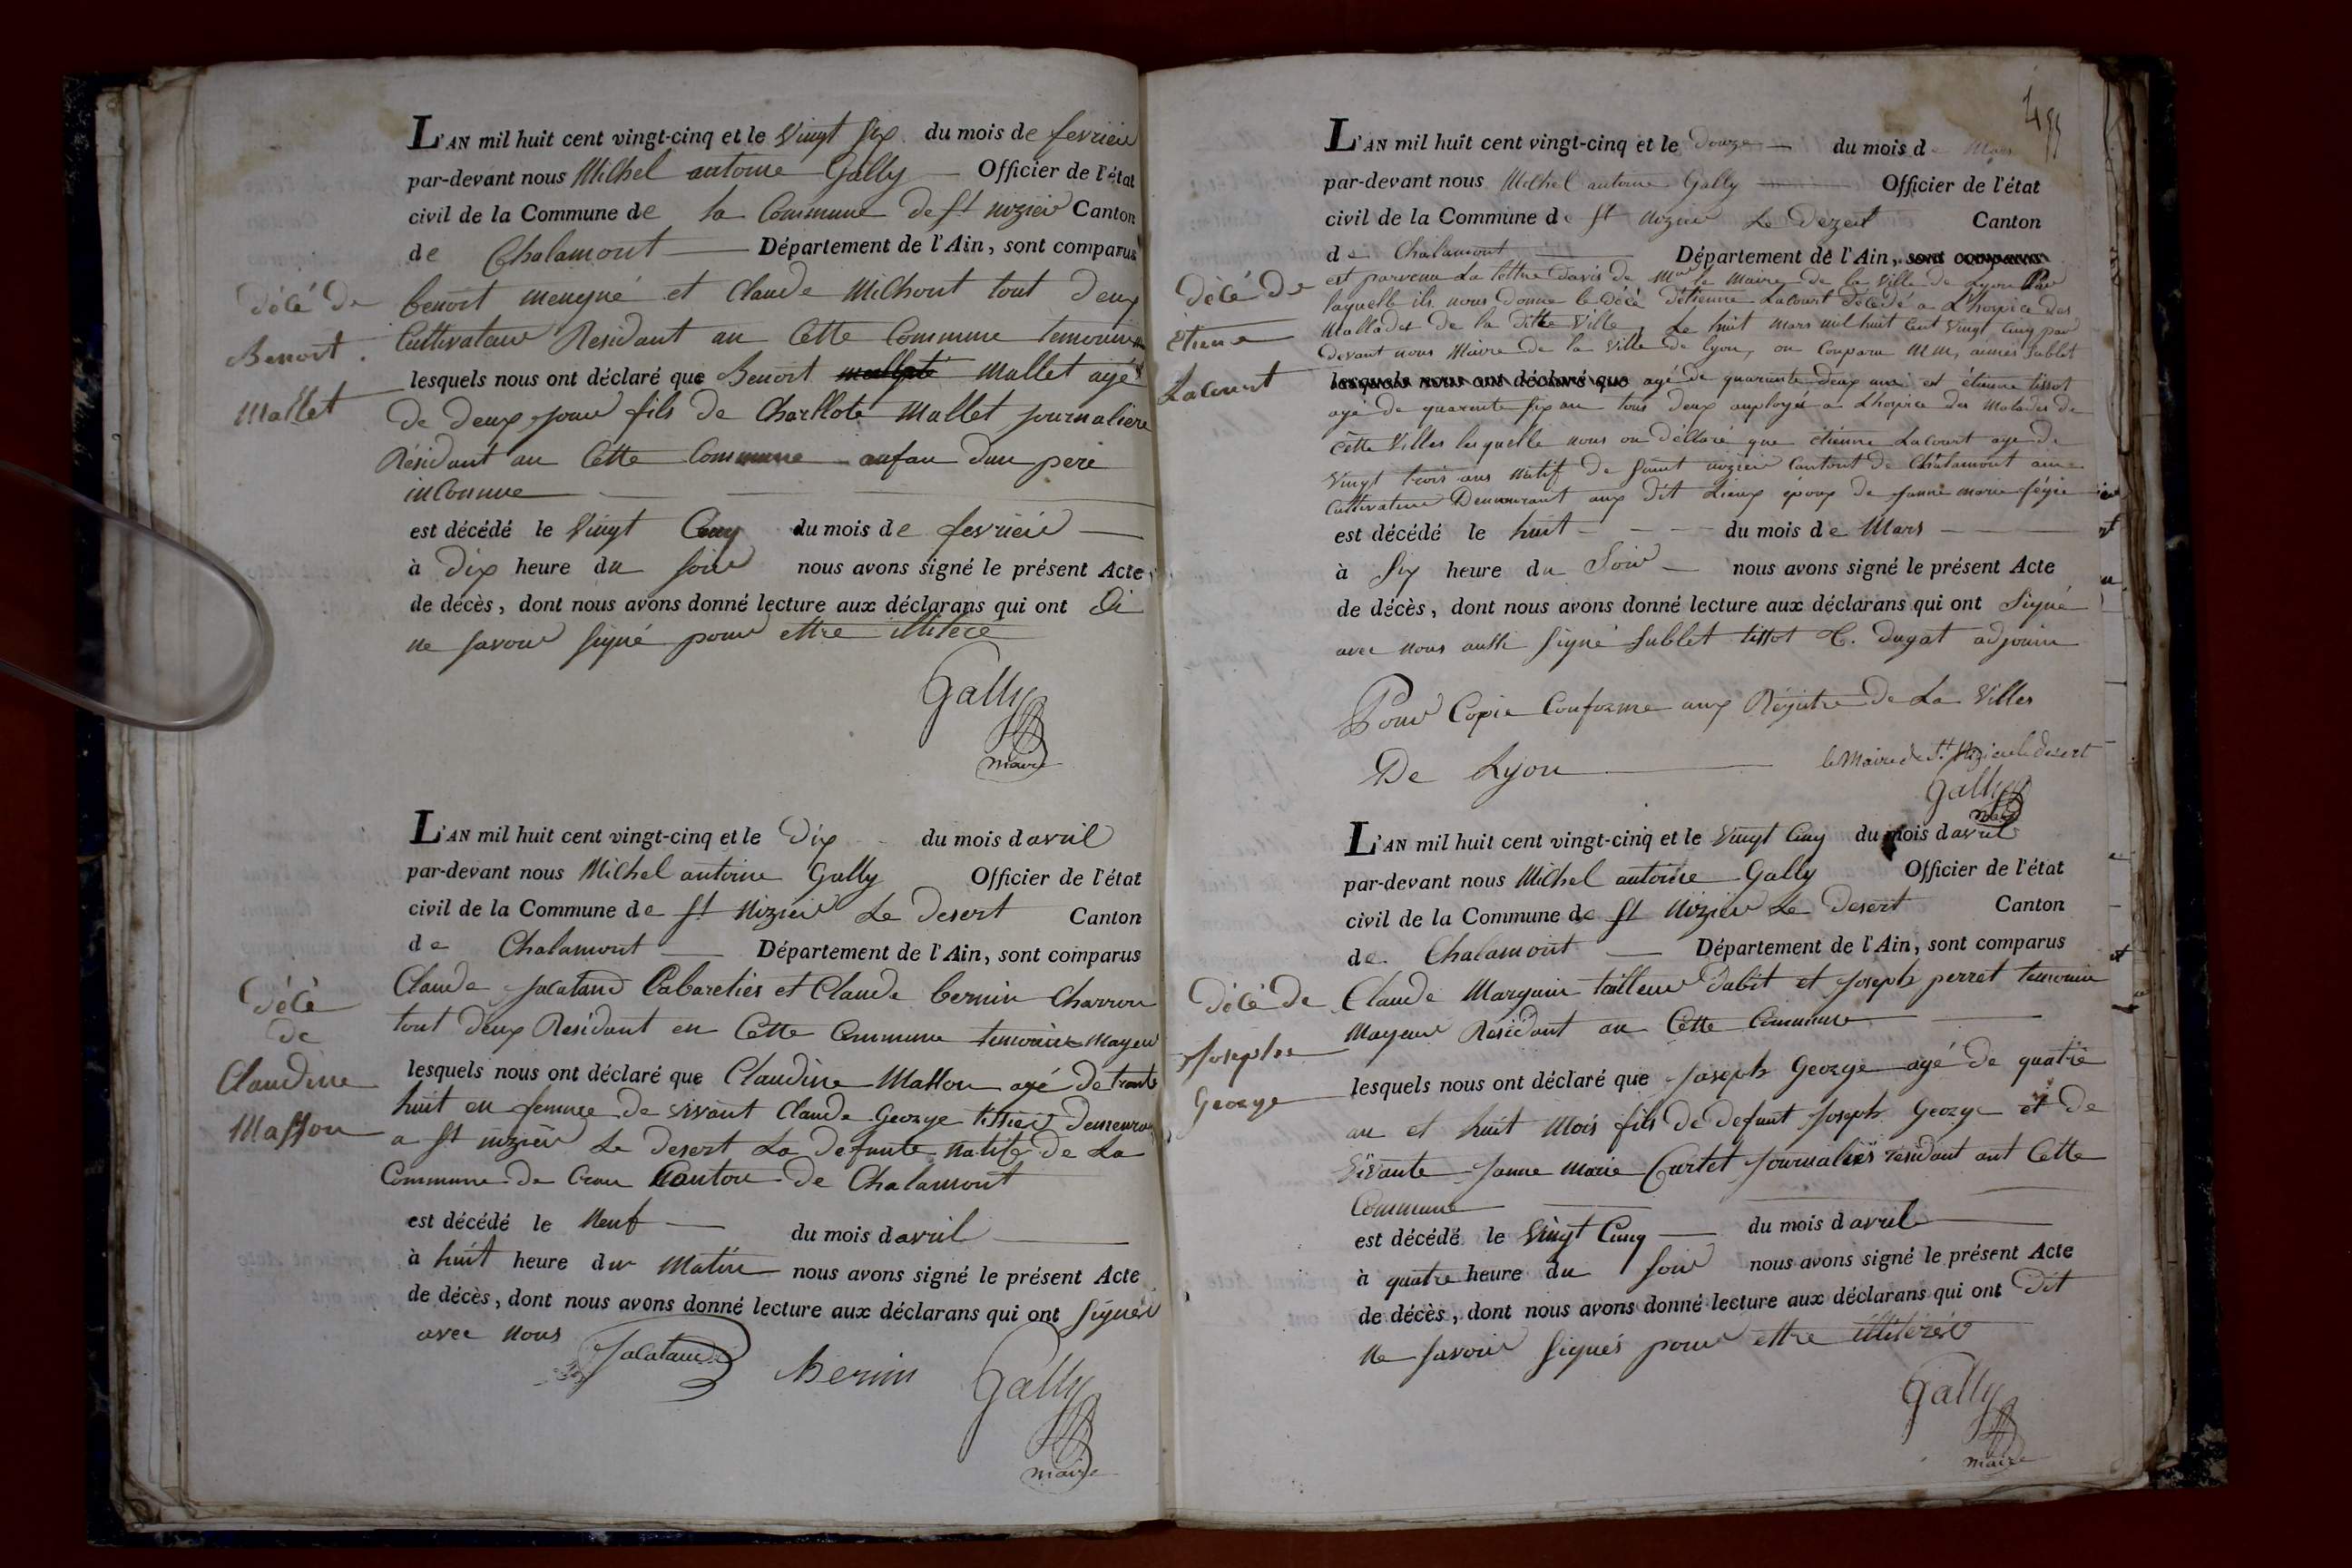 décé de
Benoit
Mallet
L'AN mil huit cent vingt-cinq et le Vingt six du mois de fevrier
par-devant nous Michel antoine Gally Officier de l'état
civil de la Commune de la Commune de st nizier Canton
de Chalamont Département de l'Ain, sont comparus
benoit et Claude Milhont tout deux
Cultivateur Residant an Cette Commune temouin
lesquels nous ont déclaré que Benoit Mallet agé
de deux jour fils de Charllote Mallet journaliere
Résidant an Cette Commune anfan dun pere
inConnue
est décédé le Vingt Cinq du mois de fevrier
à dix heure du soir nous avons signé le présent Acte
de décès, dont nous avons donné lecture aux déclarans qui ont di
ne savoir signé pour ettre illiteré
Gally
maire
décé
de
Claudine
Masson
L'AN mil huit cent vingt-cinq et le dix du mois d avril
par-devant nous Michel antoine Gally Officier de l'état
civil de la Commune de st Nizier Le Desert Canton
de Chalamont Département de l'Ain, sont comparus
Claude Jacataud Cabaretier et Claude bernin Charron
tout deux Residant en Cette Commune temouin Mayeur
lesquels nous ont déclaré que Claudine Masson agé de trante
huit an femme de vivant Claude George tissier demeuran
a st nizier Le Desert La defunte native de La
Commune de Cran Canton de Chalamont
est décédé le Neuf du mois d avril
à huit heure du Matin nous avons signé le présent Acte
de décès, dont nous avons donné lecture aux déclarans qui ont signér
avec nous
Jacataud
bernin
Gally
maire
décé de
Etiene
Lacourt
L'AN mil huit cent vingt-cinq et le douze du mois de Mars
par-devant nous Michel antoine Gally Officier de l'état
civil de la Commune de st nizier Le dezert Canton
de Chalamont Département de l'Ain, sont comparus
est parvenu La lettre davis de le Maire de la Ville de Lyon Par
laquelle ils nous donne le décé détienne Lacourt décédé a L'hospice des
Mallades de la ditte Ville, Le huit mars mil huit Cent Vingt Cinq par
devant nous Maire de la Ville de lyon, on Conparu MM, aimés Sublet
lesquels nous ont déclaré que agé de quarante deux ans et étienne tissot
agé de quarante six an tous deux employés a Lhospice des Malades de
Cette Villes lesquelle nous on déClaré que étienne Lacourt age de
Vingt trois ans natif de saint nizier Cantont de Chalamont ain
Cultivateur Demeurant aux dit Lieux époux de janne marie
est décédé le huit du mois de Mars
à six heure du Soir nous avons signé le présent Acte
de décès, dont nous avons donné lecture aux déclarans qui ont signé
avec nous aussi signé Sublet tissot C. dugat adjouin
Pour Copie Conforme aux Régistre de La Villes
De Lyon
le Maire de St. Nizier le desert
Gally
maire
décé de
Josephe
George
L'AN mil huit cent vingt-cinq et le Vingt Cinq du mois d avril
par-devant nous Michel antoine Gally Officier de l'état
civil de la Commune de st Nizier Le Desert Canton
de Chalamont Département de l'Ain, sont comparus
Claude Marguin tailleur dabit et Joseph perret temouin
Mayeur Residant an Cette Commune
lesquels nous ont déclaré que Joseph George agé de quatre
an et huit Mois fils de defunt Joseph George et de
Vivante Janne Marie Curtet journaliers residant ant Cette
Commune
est décédé le Vingt Cinq du mois d avril
à quatre heure du soir nous avons signé le présent Acte
de décès, dont nous avons donné lecture aux déclarans qui ont dit
Ne savoir signés pour ettre illiterér
Gally
maire